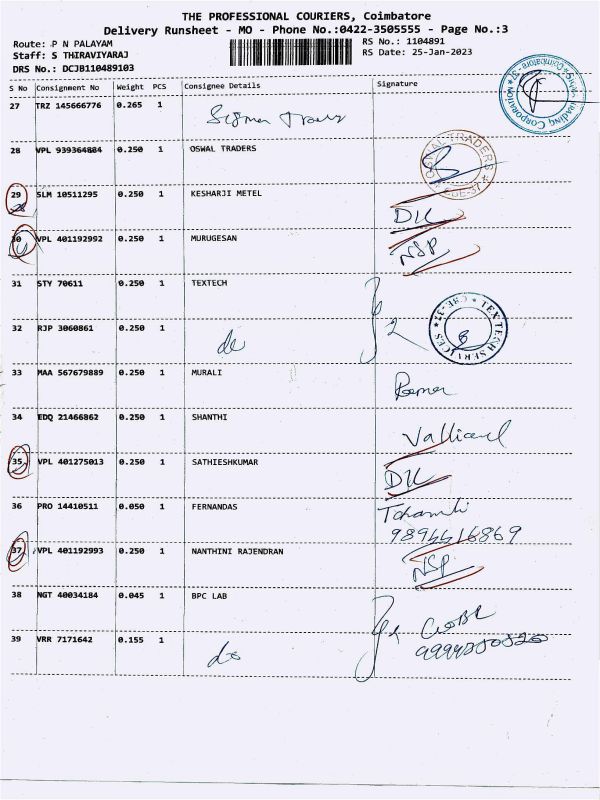 THE PROFESSIONAL COURIERS, Coimbatore
Delivery Runsheet - MO - Phone No.:0422-3505555 - Page No.:3
Route: P N PALAYAM
RS No.: 1104891
Staff: S THIRAVIYARAJ
RS Date: 25-Jan-2023
DRS No.: DCJB110489103
S No Consignment No Weight PCS Consignee Details Signature
27 TRZ 145666776 0.265 1
28 VPL 939364884 0.250 1 OSWAL TRADERS
OSWAL TRADERS
29 SLM 10511295 0.250 1 KESHARJI METEL DIL
30 VPL 401192992 0.250 1 MURUGESAN NSP
31 STY 70611 0.250 1 TEXTECH
TEX TECH SERVICES
32 RJP 3060861 0.250 1 do
33 MAA 567679889 0.250 1 MURALI
34 EDQ 21466862 0.250 1 SHANTHI
35 VPL 401275013 0.250 1 SATHIESHKUMAR DIL
36 PRO 14410511 0.050 1 FERNANDAS
37 VPL 401192993 0.250 1 NANTHINI RAJENDRAN NSP
38 NGT 40034184 0.045 1 BPC LAB
39 VRR 7171642 0.155 1 do